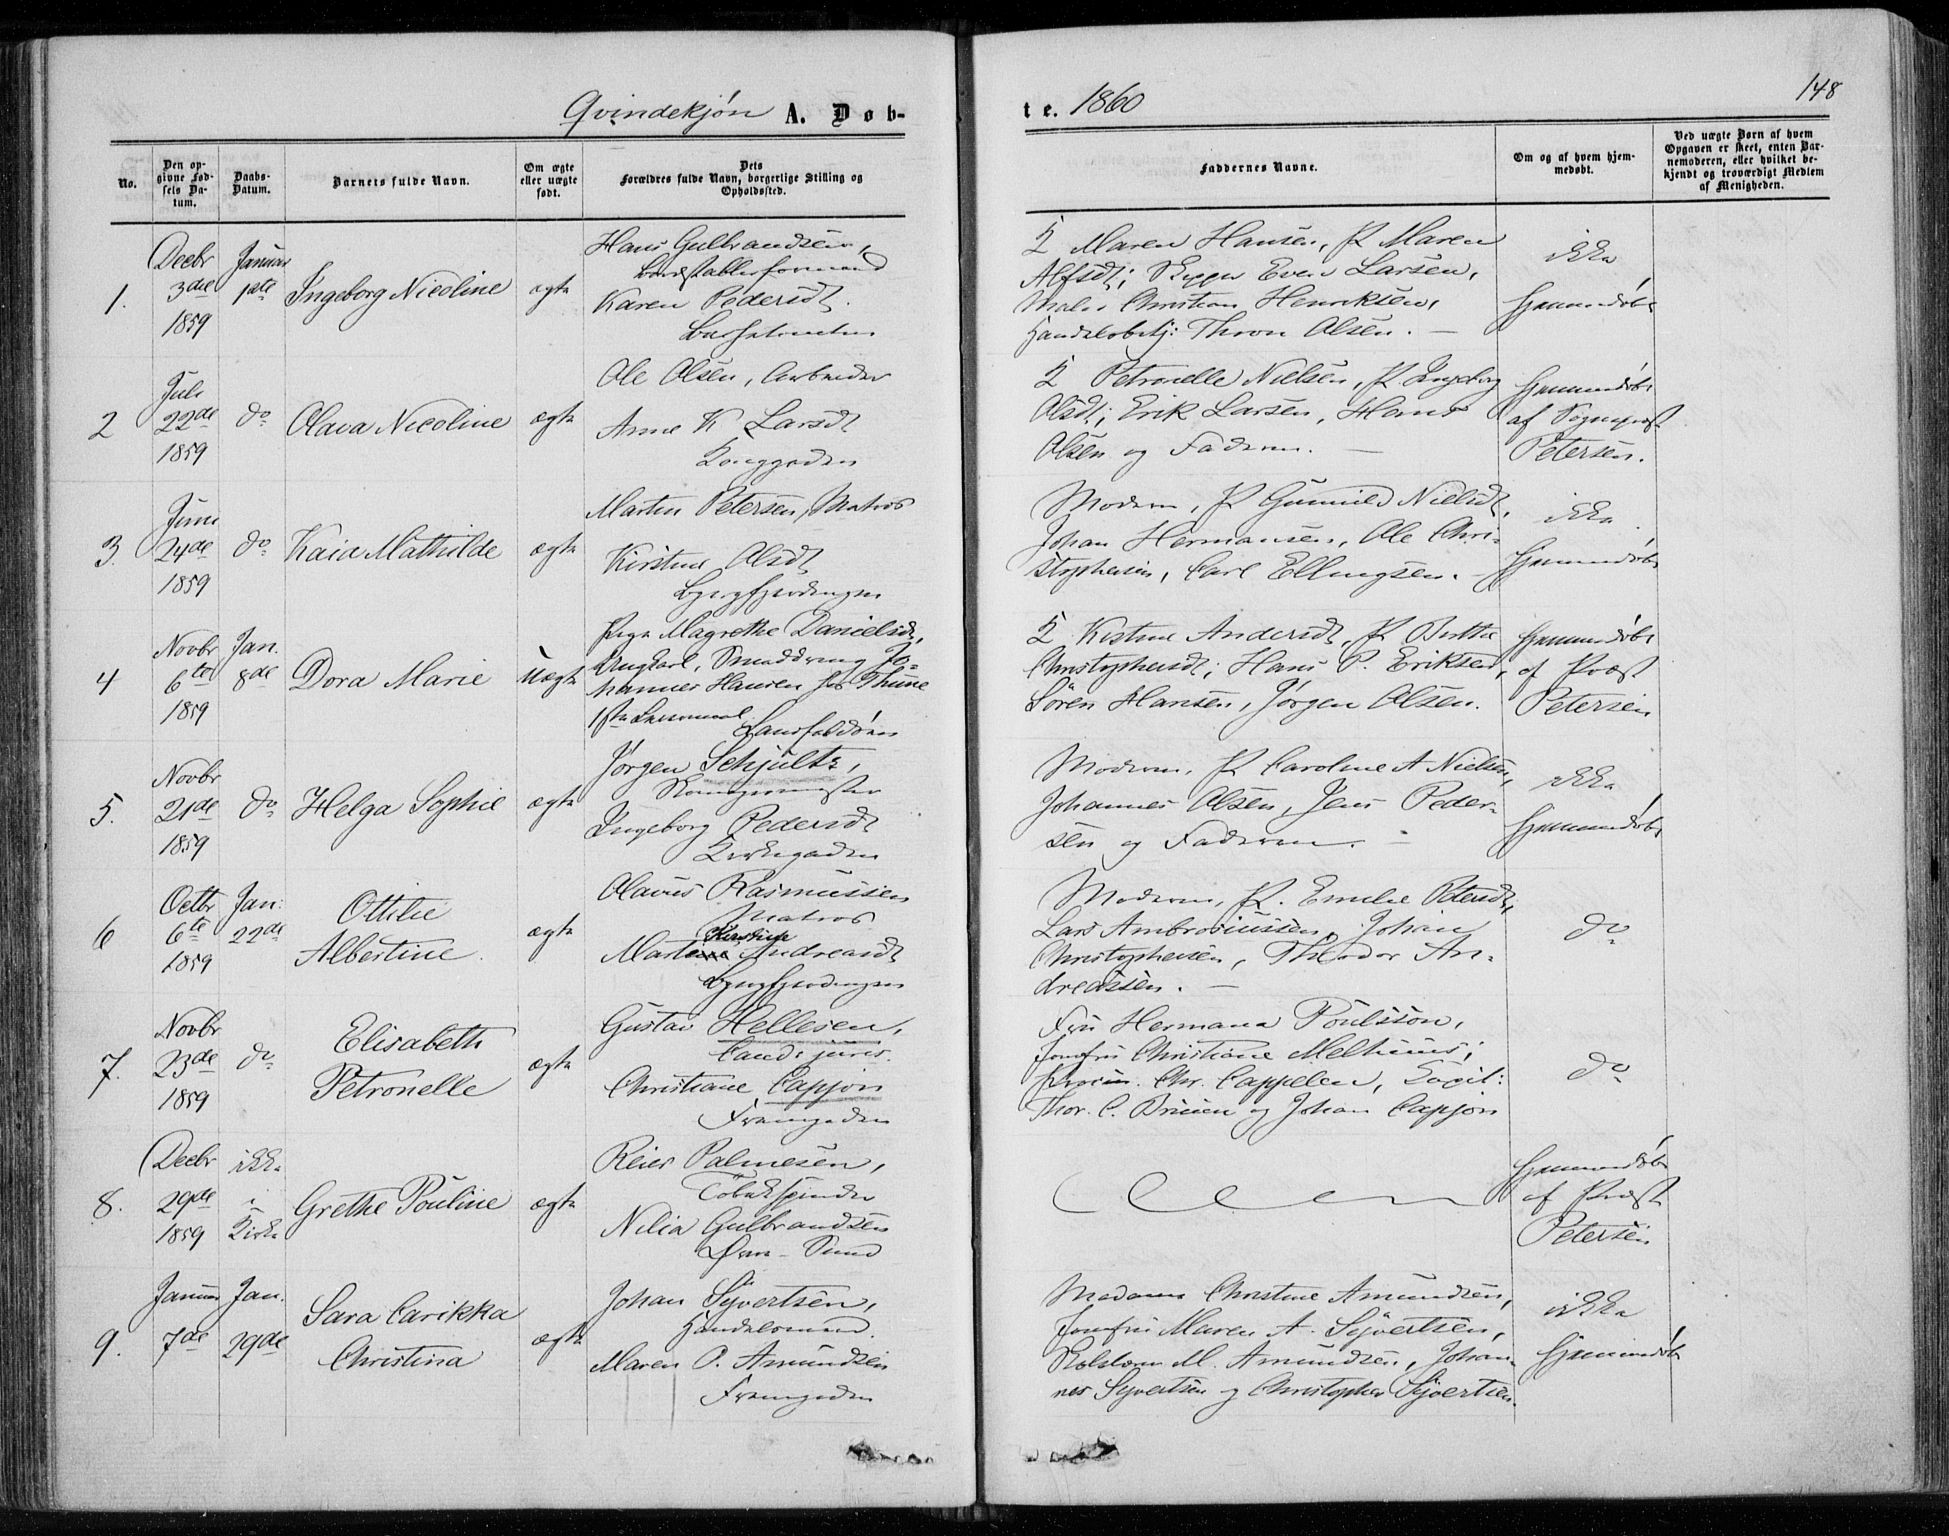 Qvindekjøn A. Døb-
te. 1860
148
No.
Den op-
givne Fød-
sels Da-
tum.
Daabs-
Datum.
Barnets fulde Navn.
Om ægte
eller uægte
født.
Dets
Forældres fulde Navn, borgerlige Stilling og
Opholdssted.
Faddernes Navne.
Om og af hvem hjem-
medøbt.
Ved uægte Børn af hvem
Opgaven er skeet, enten Bar-
nemoderen, eller hvilket be-
kjendt og troværdigt Medlem
af Menigheden.
1.
Decbr
3die
1859
Januar
1ste
Ingeborg Nicoline
ægte
Hans Gulbrandsen,
Karen Pedersdt.
Maren Hansen, P Maren
Alfsdt; Skipper Even Larsen,
Maler Christian Henriksen,
Handelsbetj: Thron Olsen. —
ikke
hjemmedøbt
2
Juli
22de
1859
do
Olava Nicoline
ægte
Ole Olsen, Arbeider
Anne K Larsdt
Langgaden
Petronelle Nielsen, P Ingeborg
Olsdt; Erik Larsen, Hans
Olsen og Faderen. —
hjemmedøbt
af Sognepræst
Petersen.
3.
Juni
24de
1859
do
Kaia Mathilde
ægte
Martin Petersen, Matros
Kirstine Olsdt
Moderen, P Gunnild Nielsdt,
Johan Hermansen, Ole Chri-
stophersen, Carl Ellingsen.
ikke
hjemmedøbt
4
Novbr
6te
1859
Jan.
8de
Dora Marie
Uægte
Pige Magrethe Danielsdt,
Ungkarl, Smeddreng Jo-
hannes Hansen hos Thune
1ste Leiermaal
Kirstine Andersdt, P Berthe
Christophersdt; Hans P. Eriksen,
Søren Hansen, Jørgen Olsen.
hjemmedøbt
af Præst
Petersen
5.
Novbr
21de
1859
do
Helga Sophie
ægte
Jørgen Schjultz,
Ingeborg Pedersdt
Kirkegaden
Moderen, P Caroline A Nielsen,
Johannes Olsen, Jens Peder-
sen og Faderen.
ikke
hjemmedøbt
6
Octbr
6te
1859
Jan:
22de
Ottilie
Albertine.
ægte
Olaves Rasmussen
Matros
Kirstine
Andreasdt
Moderen, P. Emelie Petersdt,
Lars Ambrosiussen, Johan
Christophersen, Theodor An-
dreassen. —
do
7.
Novbr
23de
1859
do
Elisabeth
Petronelle
ægte
Gustav Hellesen,
Cand: juris.
Christiane Capjon
Fremgaden
Fru Hermana Poulsson,
Jomfru Christiane Melhuus;
Chr. Cappelen,
Thor. C. Bruun og Johan Capjon
do
8.
Decbr
29de
1859
ikke
i
Kirke
Grethe Pouline
ægte
Reier Palmesen,
Tobakspinder
Nilia Gulbrandsen
Øvre-Sund
hjemmedøbt
af Præst
Petersen
9.
Januar
7de
Jan.
29de
Sara Carikka
Christina
ægte
Johan Syvertsen,
Handelsmand.
Maren P. Amundsen
Fremgaden
Madame Christine Amundsen,
Jomfru Maren A. Syvertsen,
M. Amundsen, Johan-
nes Syvertsen og Christopher Syvertsen.
ikke
hjemmedøbt